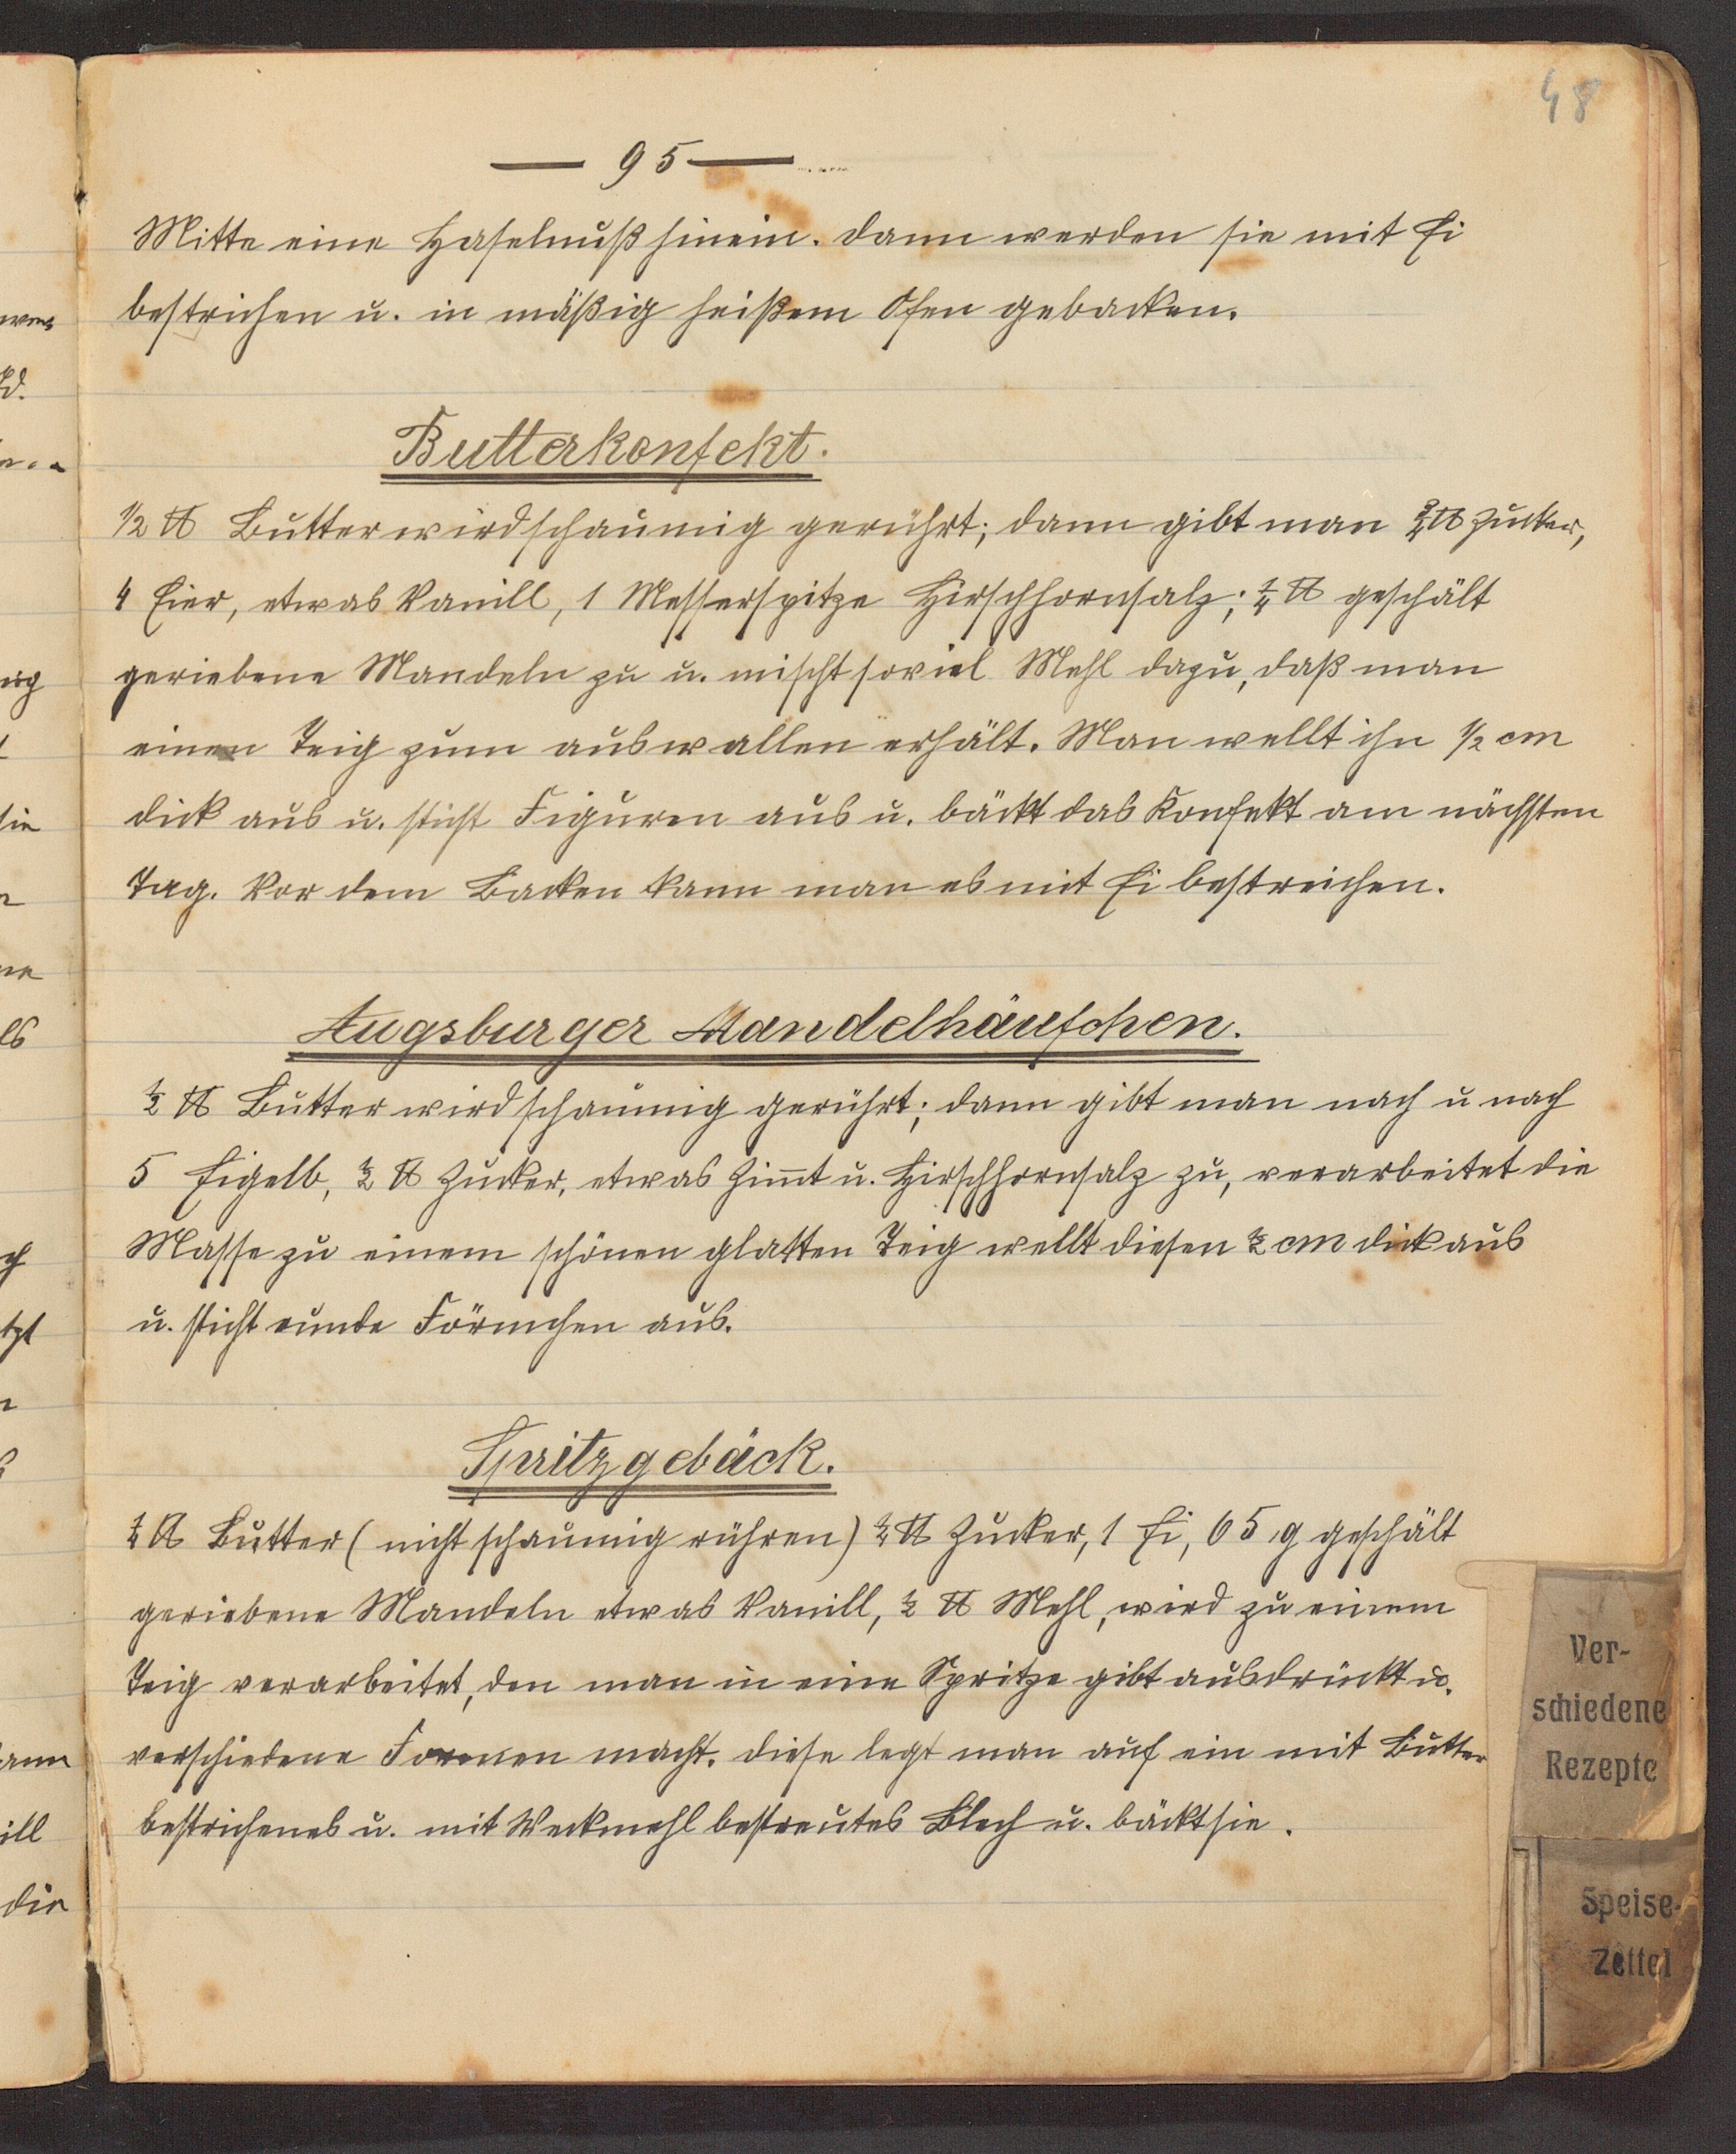 48
— 95 —
Mitte eine Haselnuß hinein. Dann werden sie mit Ei
bestrichen u. in mäßig heißem Ofen gebacken.
Butterkonfekt.
1/2 ℔ Butter wird schaumig gerührt; dann gibt man 3/4 ℔ Zucker,
4 Eier, etwas Vanill, 1 Messerspitze Hirschhornsalz; 1/4 ℔ geschält
geriebene Mandeln zu u. mischt soviel Mehl dazu, daß man
einen Teig zum auswallen erhält. Man wellt ihn 1/2 cm
dick aus u. sticht Figuren aus u. bäckt das Konfekt am nächsten
Tag. Vor dem Backen kann man es mit Ei bestreichen.
Augsburger Mandelhäufchen.
1/2 ℔ Butter wird schaumig gerührt; dann gibt man nach u nach
5 Eigelb, 1/2 ℔ Zucker, etwas Zim̅t u. Hirschhornsalz zu, verarbeitet die
Masse zu einem schönen glatten Teig wellt diesen 1/2 cm dick aus
u. sticht runde Förmchen aus.
Spritzgebäck.
1/4 ℔ Butter (nicht schaumig rühren) 1/4 ℔ Zucker, 1 Ei, 65 g geschält
geriebene Mandeln etwas Vanill, 1/2 ℔ Mehl, wird zu einem
Teig verarbeitet, den man in eine Spritze gibt ausdrückt u.
verschiedene Formen macht. Diese legt man auf ein mit Butter
bestrichenes u. mit Weckmehl bestreutes Blech u. bäckt sie.
Ver-
schiedene
Rezepte
Speise-
Zettel